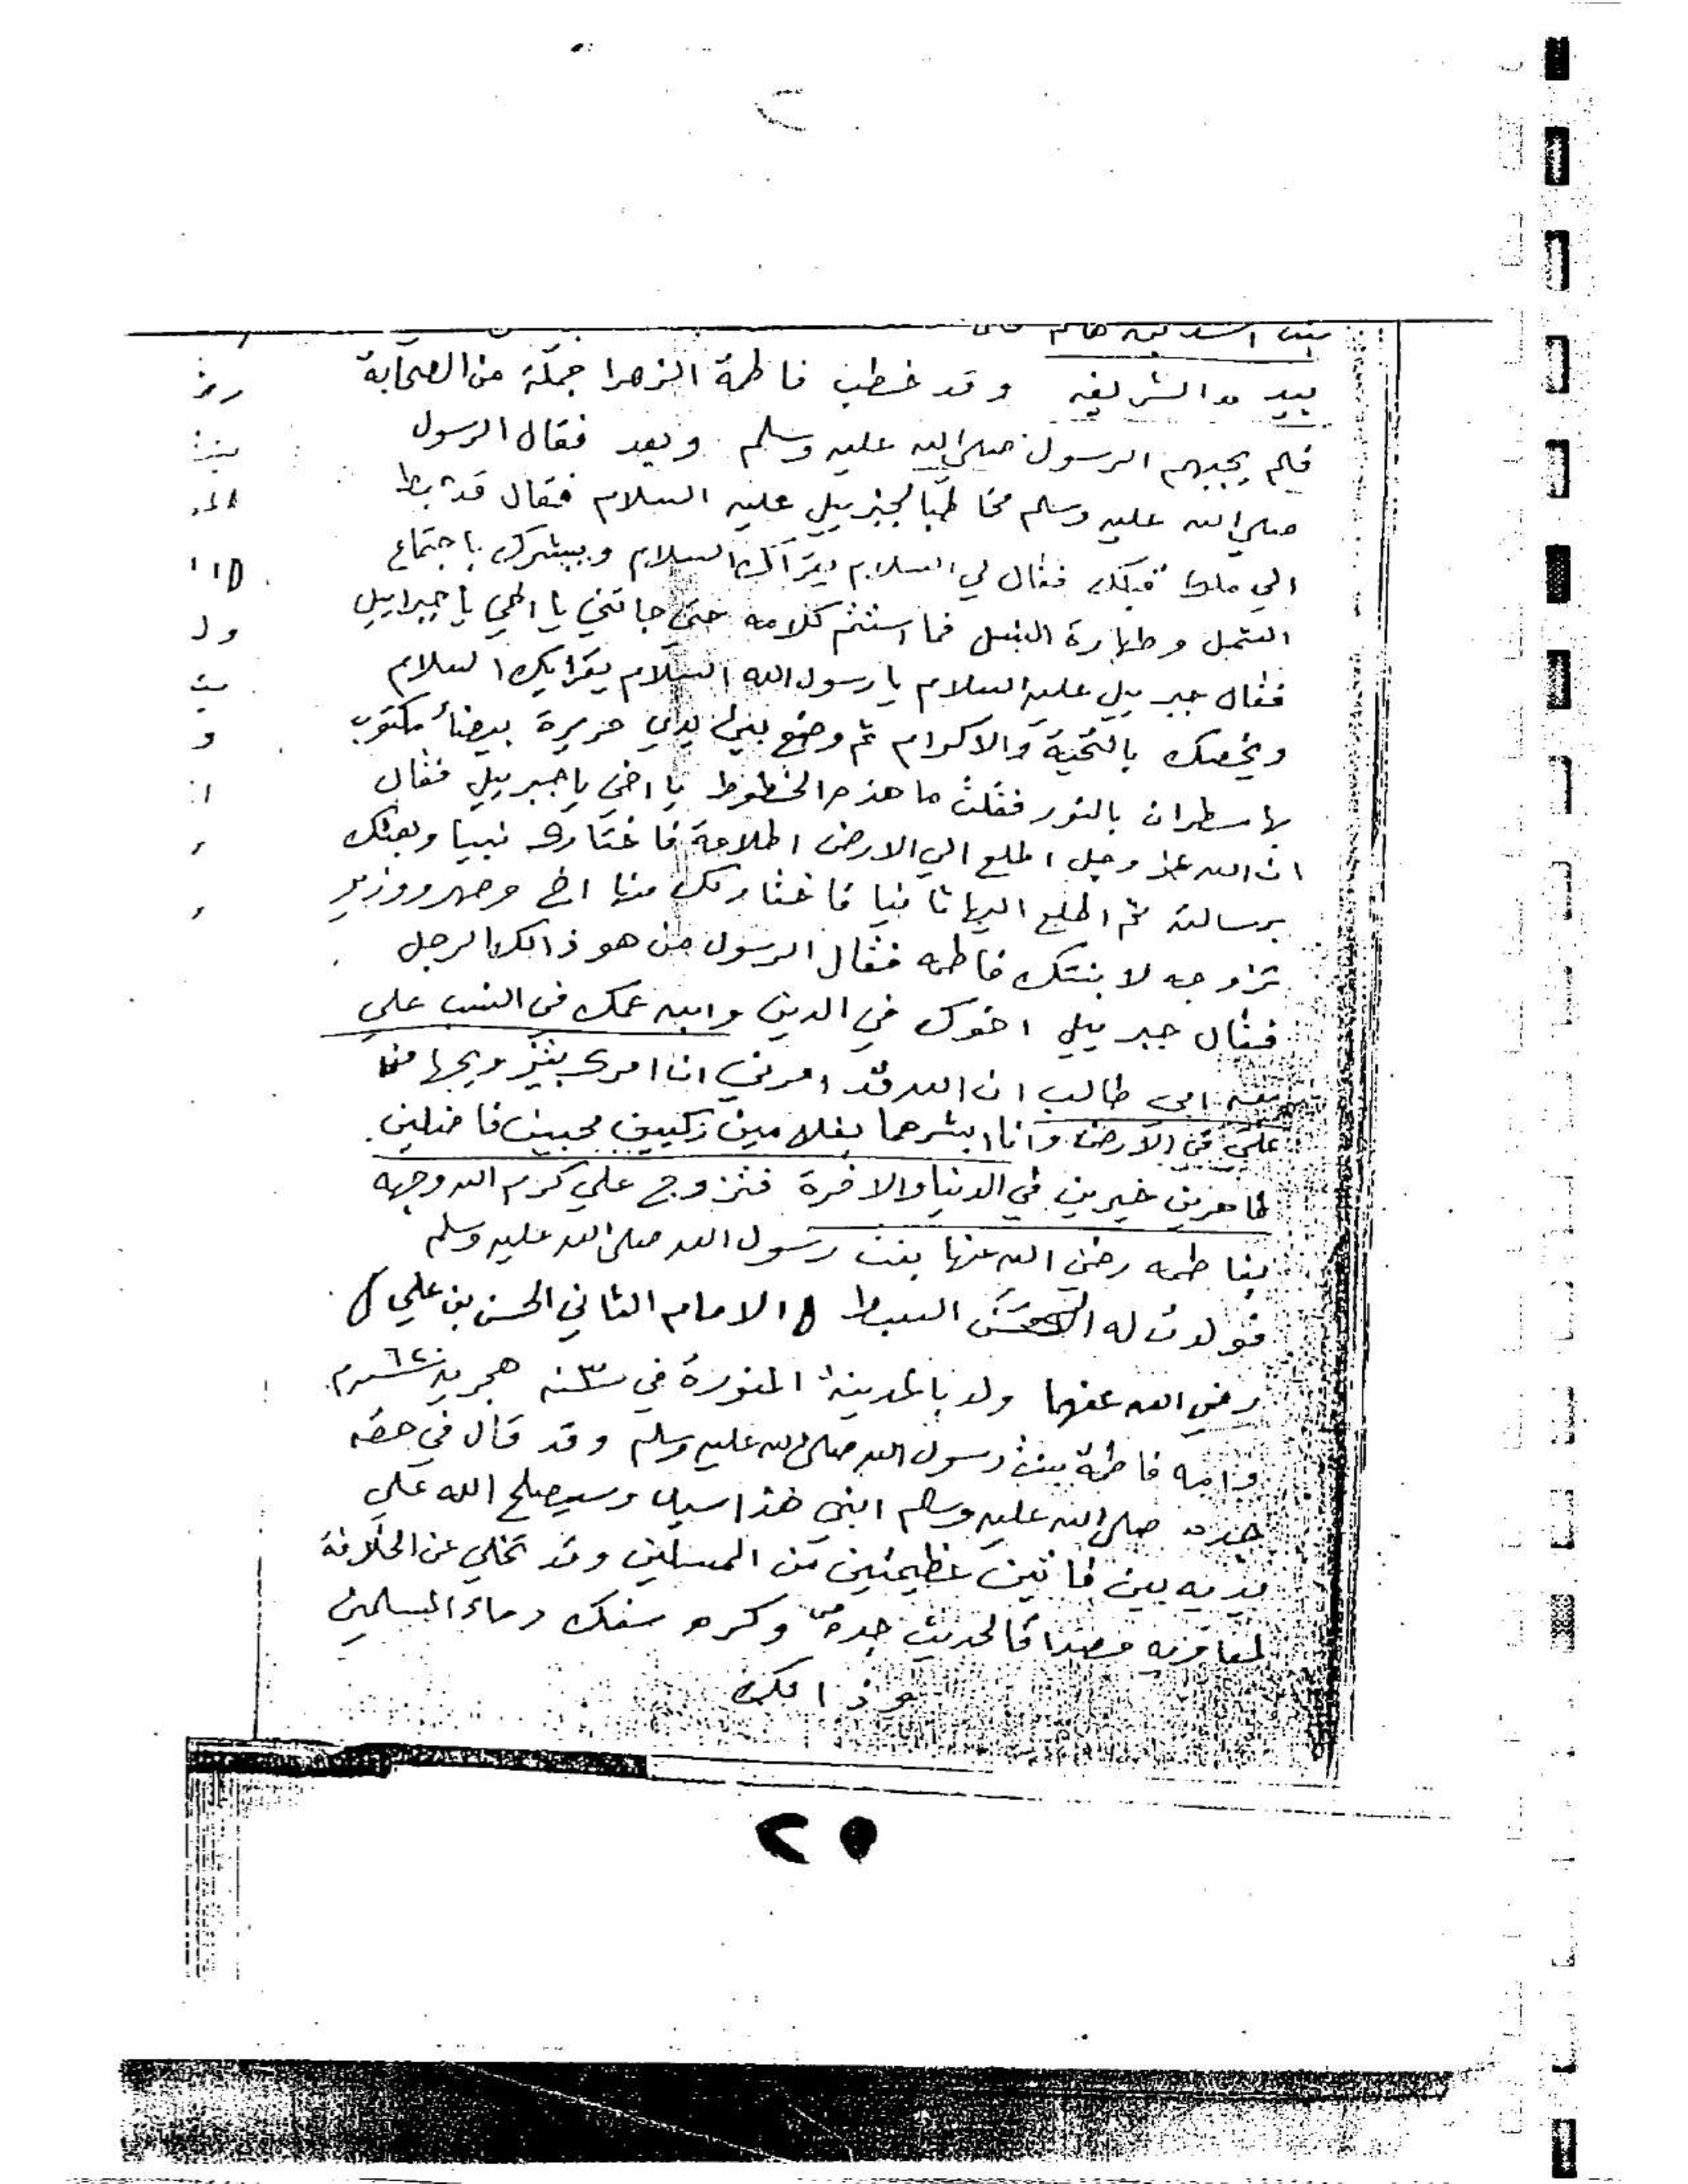 بيده الشريفه وقد خطب فاطمة الزهرا جملة من الصحابة
فلم يجبهم الرسول صلى الله عليه وسلم وبعد فقال الرسول
صلى الله عليه وسلم مخاطبا لجبربيل عليه السلام فقال قد هبط
الي ملك قبلك فقال لي السلام يقرأك السلام ويبشرك باجتماع
الشمل وطهارة النسل فما استتم كلامه حتى جاتني يا اخي يا جبراييل
فقال جبربيل عليه السلام يا رسول الله السلام يقرايك السلام
ويخصك بالتحية والاكرام ثم وضع بين يدي حريرة بيضأ مكتوب
بها سطران بالنور فقلت ما هذه الخطوط يا اخي يا جبربيل فقال
ان الله عز وجل اطلع الي الارض اطلاعة فاختارك نبيا وبعثك
برسالته ثم اطلع اليها ثانيا فاختار لك منها اخ وصهر ووزير
تزوجه لابنتك فاطمه فقال الرسول من هو ذالك الرجل
فقال جبربيل اخوك في الدين وابن عمك في النسب علي
بن ابي طالب ان الله قد امرني ان امرك بتزويجها من
علي في الارض وانا ابشرهما بغلامين زكيين محبين فاضلين
طاهرين خيرين في الدنيا والاخرة فتزوج علي كرم الله وجهه
بفاطمه رضي الله عنها بنت رسول الله صلى الله عليه وسلم
فولدت له الحسن السبط (الامام الثاني الحسن بن علي)
رضي الله عنهما ولد بالمدينة المنورة في سنه ٣ هجريه
وامه فاطمة بنت رسول الله صلى الله عليه وسلم وقد قال في حقه
جده صلى الله عليه وسلم ابني هذا سيد وسيصلح الله علي
يديه بين فائتين عظيمتين من المسلمين وقد تخلي عن الخلافة
لمعاويه مصداقا لحديث جده ص وكره سفك دماء المسلمين
وذالك